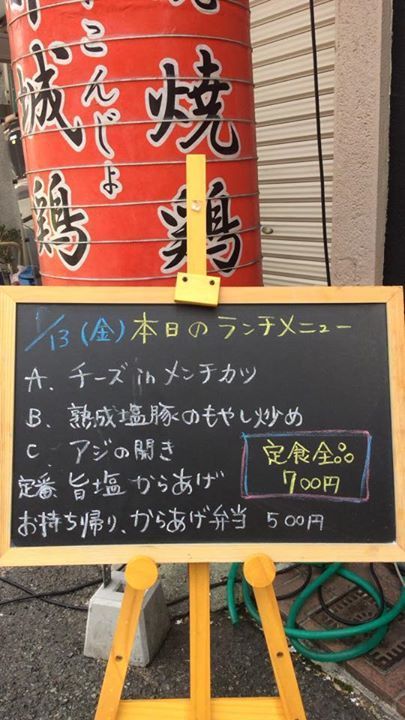 焼鶏
城鶏
こんじょ
1/13(金)本日のランチメニュー
A、チーズinメンチカツ
B、熟成塩豚のもやし炒め
C アジの開き
定食全品
700円
定番、旨塩からあげ
お持ち帰り、からあげ弁当 500円